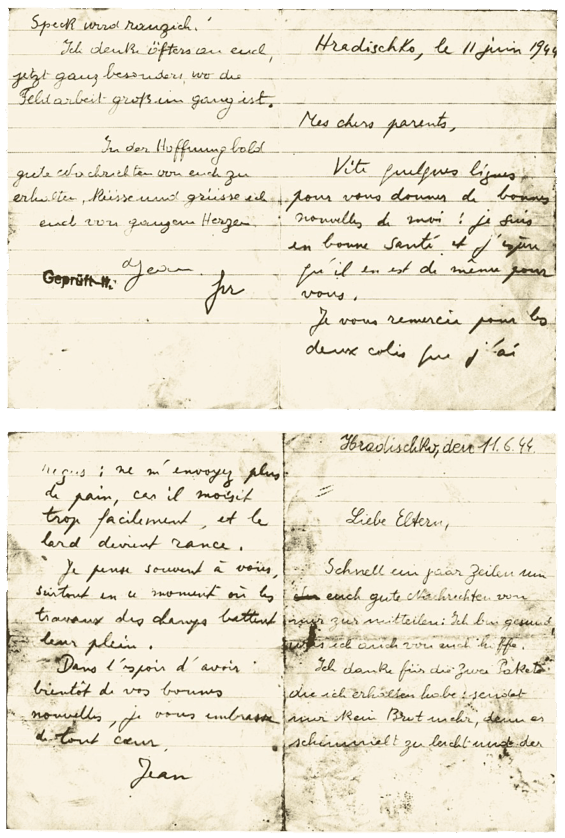 Speck wird ranzich!
Ich denke öfters an euch,
jetzt ganz besonders, wo die
Feldarbeit groß im gang ist.
In der Hoffnung bald
gute Nachrichten von euch zu
erhalten, Küsse und grüsse ich
euch von ganzem Herzen
Jean
Geprüft
Hradischko, le 11 juin 1944
Mes chers parents,
Vite quelques lignes
pour vous donner de bonnes
nouvelles de moi : je suis
en bonne santé et j'espère
qu'il en est de même pour
vous.
Je vous remercie pour les
deux colis que j'ai
reçus : ne m'envoyez plus
de pain, car il moisit
trop facilement, et le
lard devient rance.
Je pense souvent à vous,
surtout en ce moment où les
travaux des champs battent
leur plein.
Dans l'espoir d'avoir
bientôt de vos bonnes
nouvelles, je vous embrasse
de tout cœur.
Jean
Hradischko, den 11.6.44.
Liebe Eltern,
Schnell ein paar Zeilen um
euch gute Nachrichten von
mir zur mitteilen: Ich bin gesund,
was ich auch von euch hoffe.
Ich danke für die zwei Pakete
die ich erhalten habe: sendet
mir kein Brot mehr, denn es
schimmelt zu leicht und der